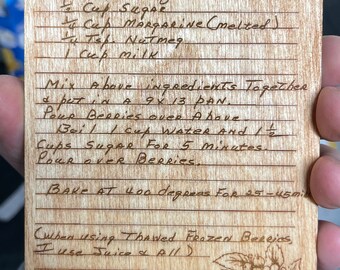 ½ Cup Sugar
¼ Cup Margarine (melted)
¼ Tsp Nutmeg
1 Cup milk
Mix Above ingredients Together
& put in a 9x13 pan.
Pour Berries over Above.
Boil 1 cup Water and 1 ½
Cups Sugar For 5 minutes.
Pour over Berries.
Bake at 400 degrees For 25-45 min
(When using Thawed Frozen Berries,
I use Juice & All)